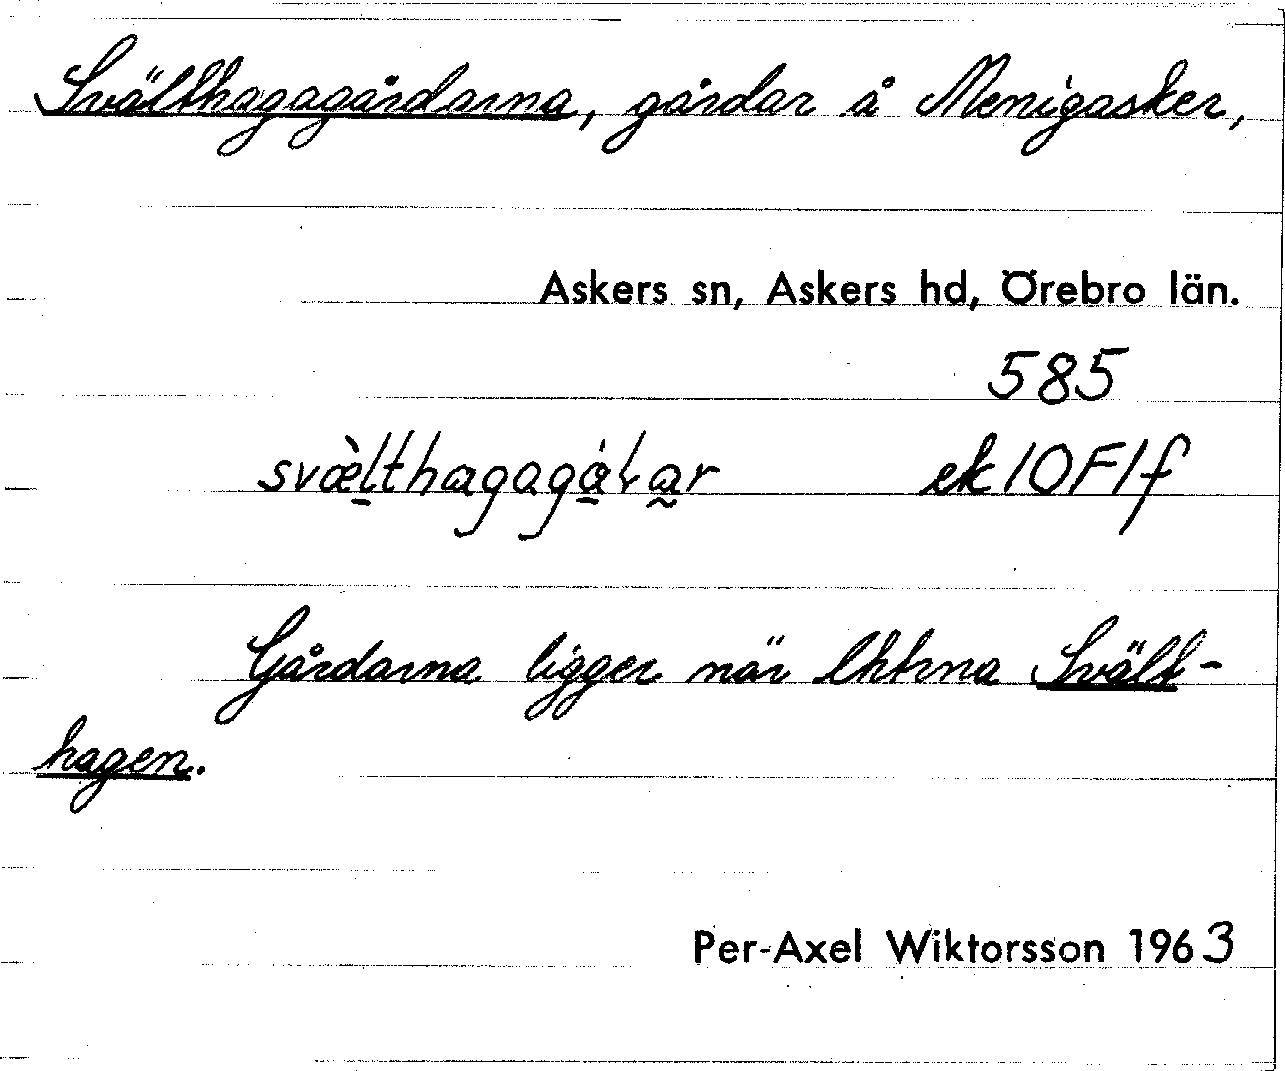 Svälthagagårdarna, gårdar å Menigasker,
Askers sn, Askers hd, Örebro län.
585
ek 10F1f
Gårdarna ligger när lhhrna Svält-
hagen.
Per-Axel Wiktorsson 1963